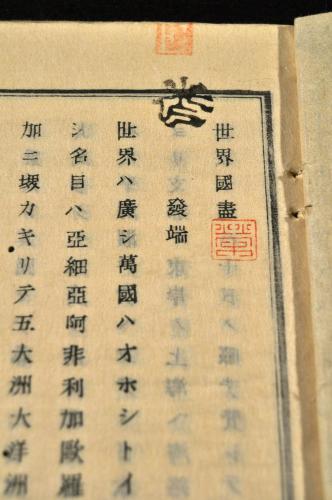 世界國盡
發端
世界ハ廣シ萬國ハオホシトイ
シ名目ハ亞細亞阿非利加歐羅
加ニ堺カキリテ五大洲大洋洲